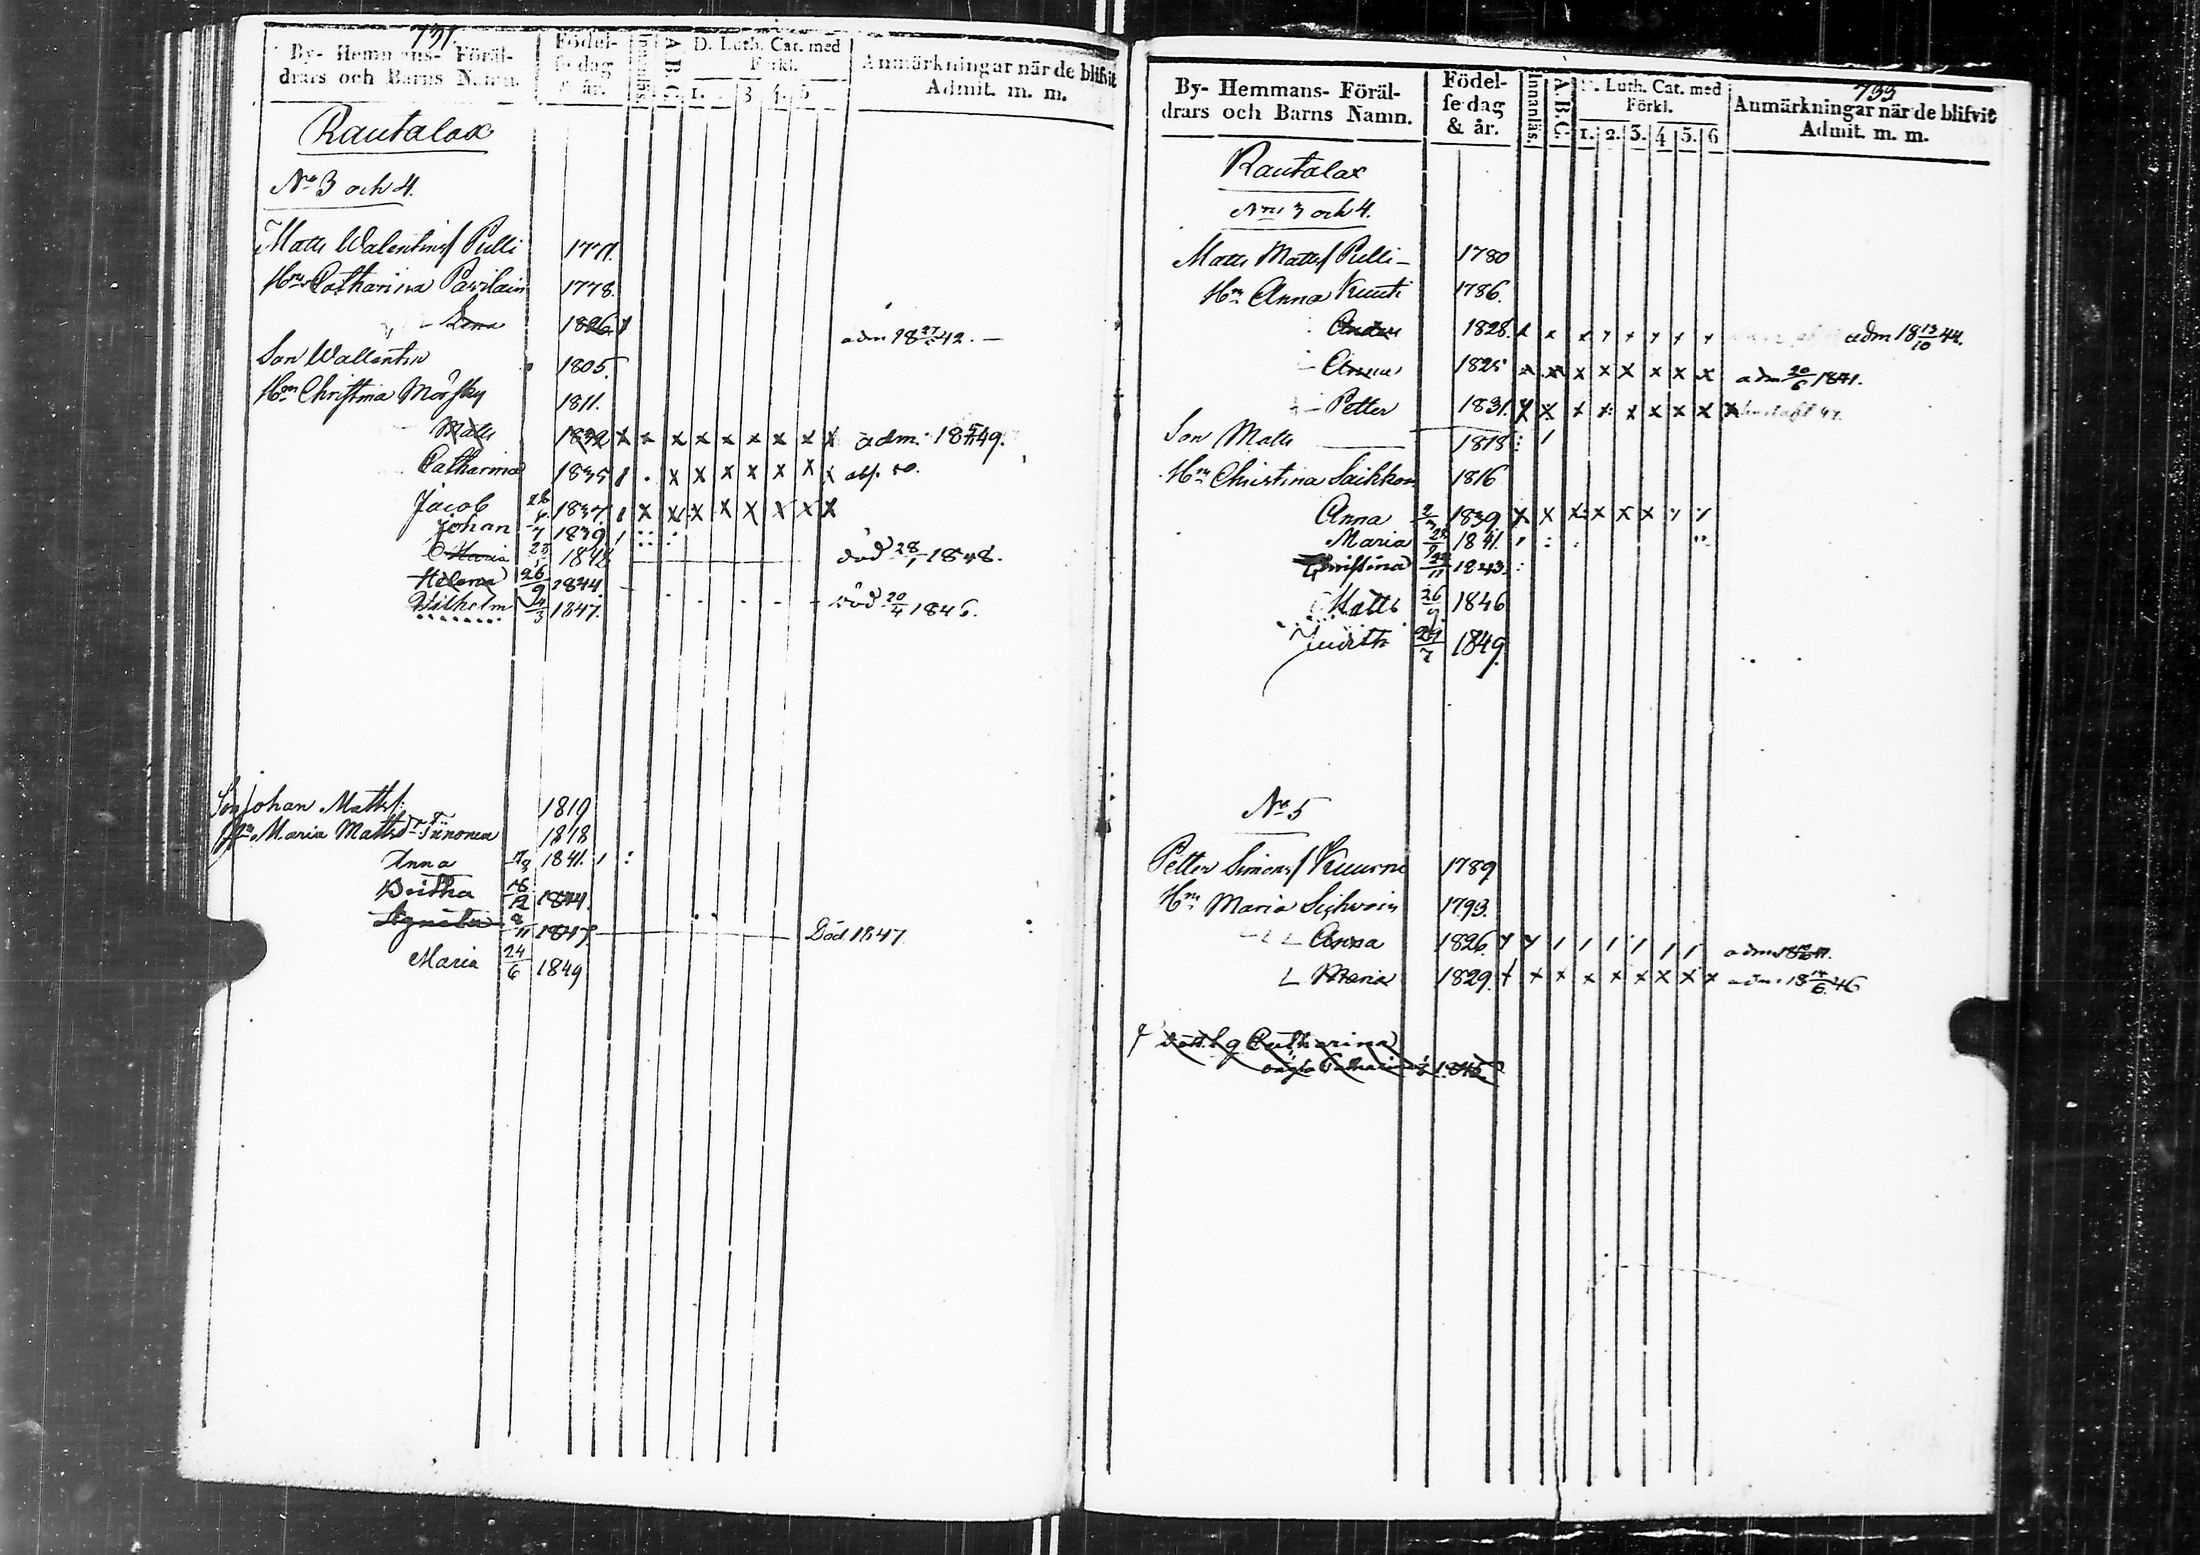 731.
By- Hemmans- Föräl-
drars och Barns Namn.
Födel-
se dag
& år.
Innanläs.
A.B.C.
D. Luth. Cat. med
Förkl.
1. 3 4. 5
Anmärkningar när de blifvit
Admit. m. m.
Rautalax
No 3 och 4.
Matts Walentinss Pulli 1771.
Hru Catharina Pavilain 1778.
Lena 1826. adm 18 42. —
Son Wallentin 1805.
Hru Christina Mörsky 1811.
Matts 1832 x x x x x x x x x adm: 18 49.
Catharina 1835 x x x x x x x
Jacob 1837. x x x x x x x x
Johan 1839.
Maria död 28/1 1848.
Helena 26/9 1844.
Wilhelm 4/3 1847. död 20/4 1846.
Son Johan Mattss: 1819
Hru Maria Mattsdr 1818
Anna 1841.
Britha 1844.
Agneta 8/11 1847 Död 1847.
Maria 24/6 1849
733
By- Hemmans- Föräl-
drars och Barns Namn.
Födel-
se dag
& år.
Innanläs.
A.B.C.
D. Luth. Cat. med
Förkl.
1. 2. 3. 4 5. 6
Anmärkningar när de blifvit
Admit. m. m.
Rautalax
Nro 3 och 4.
Matts Mattss Pulli — 1780
Hru Anna Kuuti 1786.
1828. adm 18 13/10 44.
Anna 1825 x x x x x x x x adm 20/6 1841.
Petter 1831. x x x x x x x x
Son Matts 1818
Hru Christina Saikkon 1816
Anna 2/3 1839. x x x x x x
Maria 1841.
Christina 1843.
Matts 26/9 1846
Judith 29/7 1849.
No 5
Petter Simonss Kuurne 1789
Hru Maria Sihvoin 1793.
Anna 1826.
Maria 1829. x x x x x x x x adm 18 14/6 46
Catharina
1845